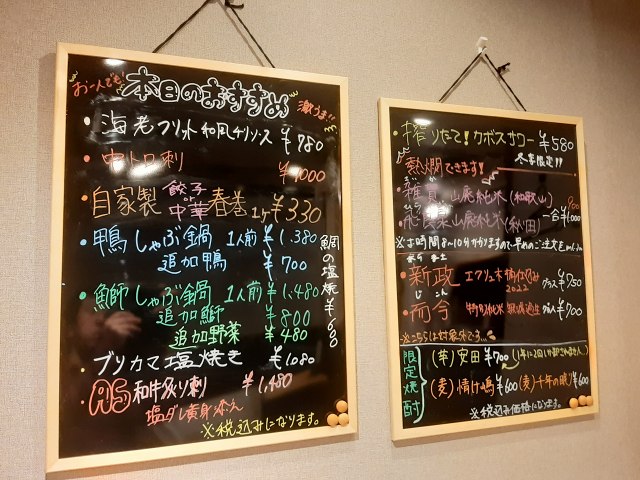 お一人でも!
本日のおすすめ
激うま!!
・海老フリット和風チリソース ¥780
・中トロ刺 ¥1000
・自家製 餃子 or 中華 春巻 1ヶ ¥330
・鴨しゃぶ鍋 1人前 ¥1,380
追加鴨 ¥700
・鰤しゃぶ鍋 1人前 ¥1,480
追加鰤 ¥800
追加野菜 ¥480
鯛の塩焼 ¥600
・ブリカマ塩焼き ¥1080
・A5和牛炙り刺 ¥1,480
塩ダレ黄身添え
※税込みになります。
・搾りたて!カボスサワー ¥580
冬季限定!!
熱燗できます!
山廃純米(和歌山)
山廃純米(秋田)
一合 ¥1,000
※お時間8〜10分かかりますので早めのご注文を
・新政 2022 グラス ¥950
・而今 特別純米 グラス ¥700
※こちらは対象外です…
限定焼酎
(芋)安田 ¥700
(麦)情け嶋 ¥600 (麦)千年の眠 ¥600
※税込み価格になります。